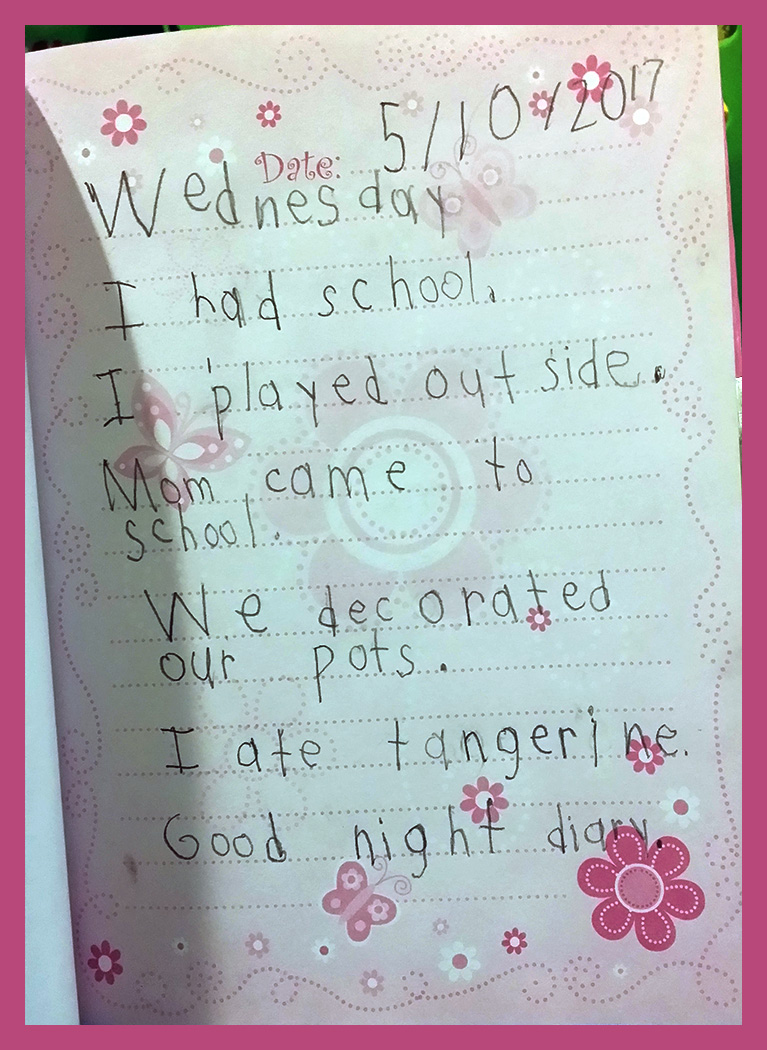 Date: 5/10/2017
Wednesday
I had school.
I played out side.
Mom came to
school.
We decorated
our pots.
I ate tangerine.
Good night diary.